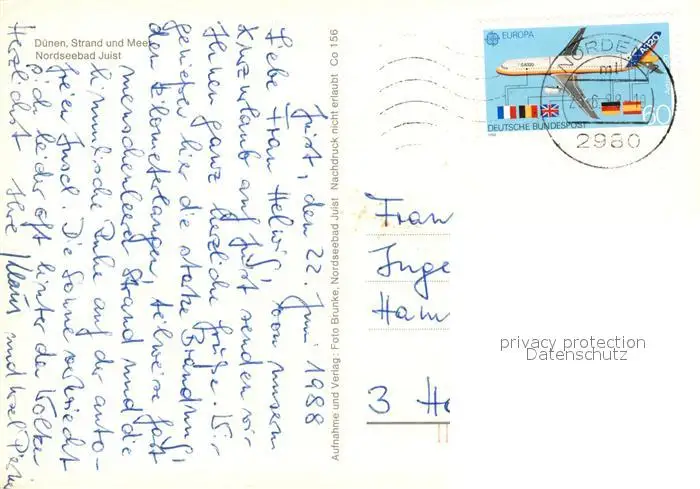 Dünen, Strand und Meer
Nordseebad Juist
Juist, den 22. Juni 1988
Liebe Frau Helwig, von unserem
Kurzurlaub auf Juist senden wir
Ihnen ganz herzliche Grüße. Wir
genießen hier die starke Brandung,
den kilometerlangen, teilweise fast
menschenleeren Strand und die
himmlische Ruhe auf der auto-
freien Insel. Die Sonne versteckt
sich leider oft hinter den Wolken
Herzlichst Ihre Klaus und
Aufnahme und Verlag: Foto Brunke, Nordseebad Juist Nachdruck nicht erlaubt Co 156
EUROPA
A320
DEUTSCHE BUNDESPOST
60
1988
NORDEN
2980
Frau
Inge
Ham
3 Ha
privacy protection
Datenschutz